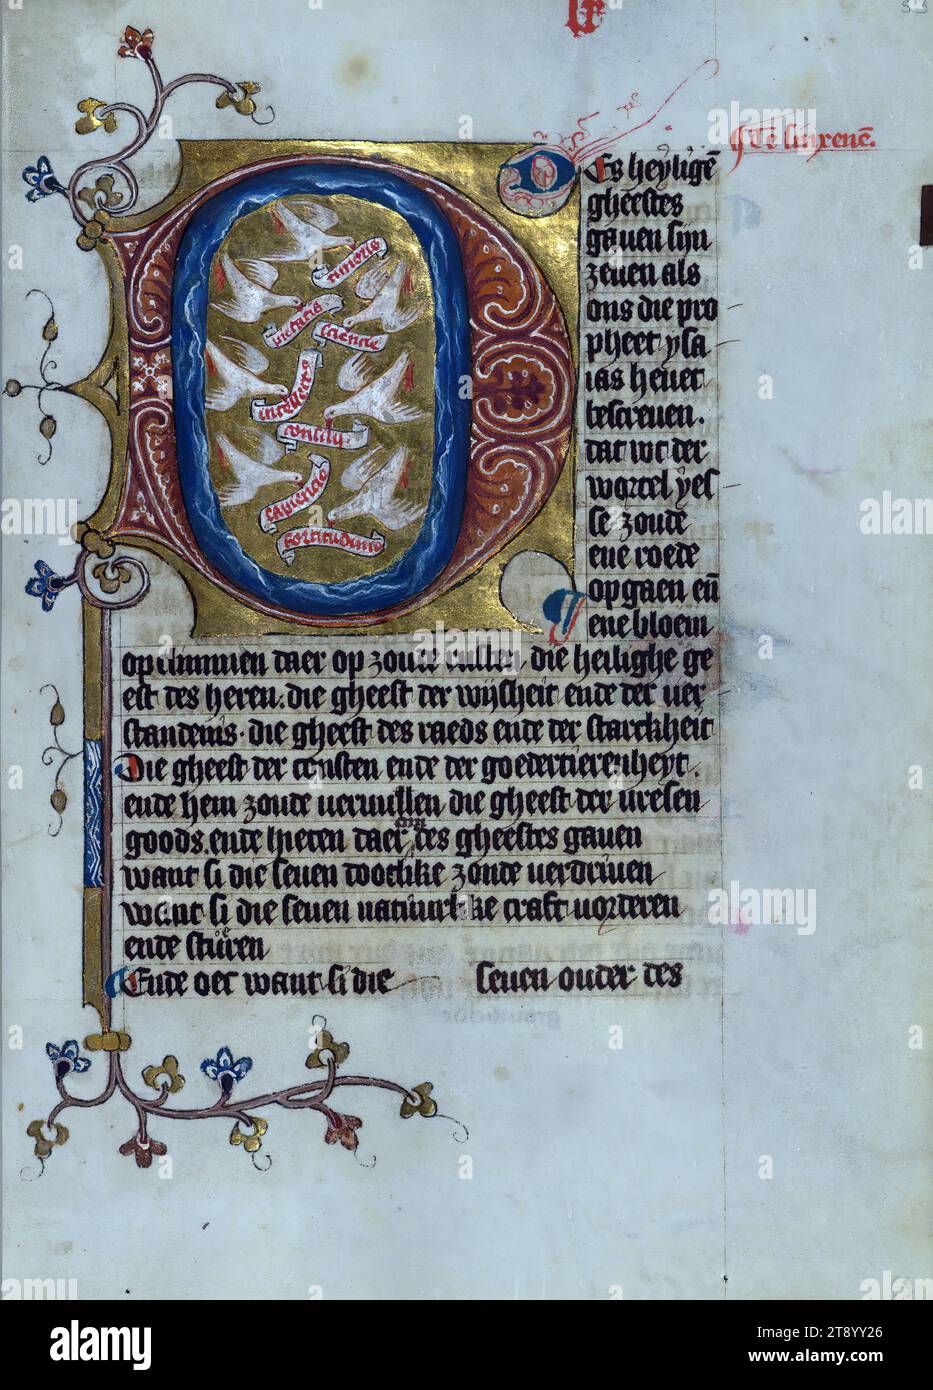 Te sinxenē.
timoris
pietatis
sciencie
intellectus
consilij
sapiencie
fortitudinis
Des heyligē
gheestes
gauen sijn
zeuen als
ons die pro
pheet ysa
ias heuet
bescreuen.
dat wt der
wortel yes
se zoude
ene roede
opgaen eñ
ene bloem
opclimmen daer op zoude rusten die heilighe ge
est des heren. die gheest der wijsheit ende der uer
standenis. die gheest des raeds ende der starckheit
Die gheest der consten ende der goedertierenheyt.
ende hem zoude ueruullen die gheest der uresen
goods. ende hieten daer om des gheestes gauen
want si die seuen dootlike zonde uerdriuen
want si die seuen natuurlike craft uorderen
ende stueren
Ende oec want si die seuen ouder des
alamy
Image ID: 2T8YY26
www.alamy.com